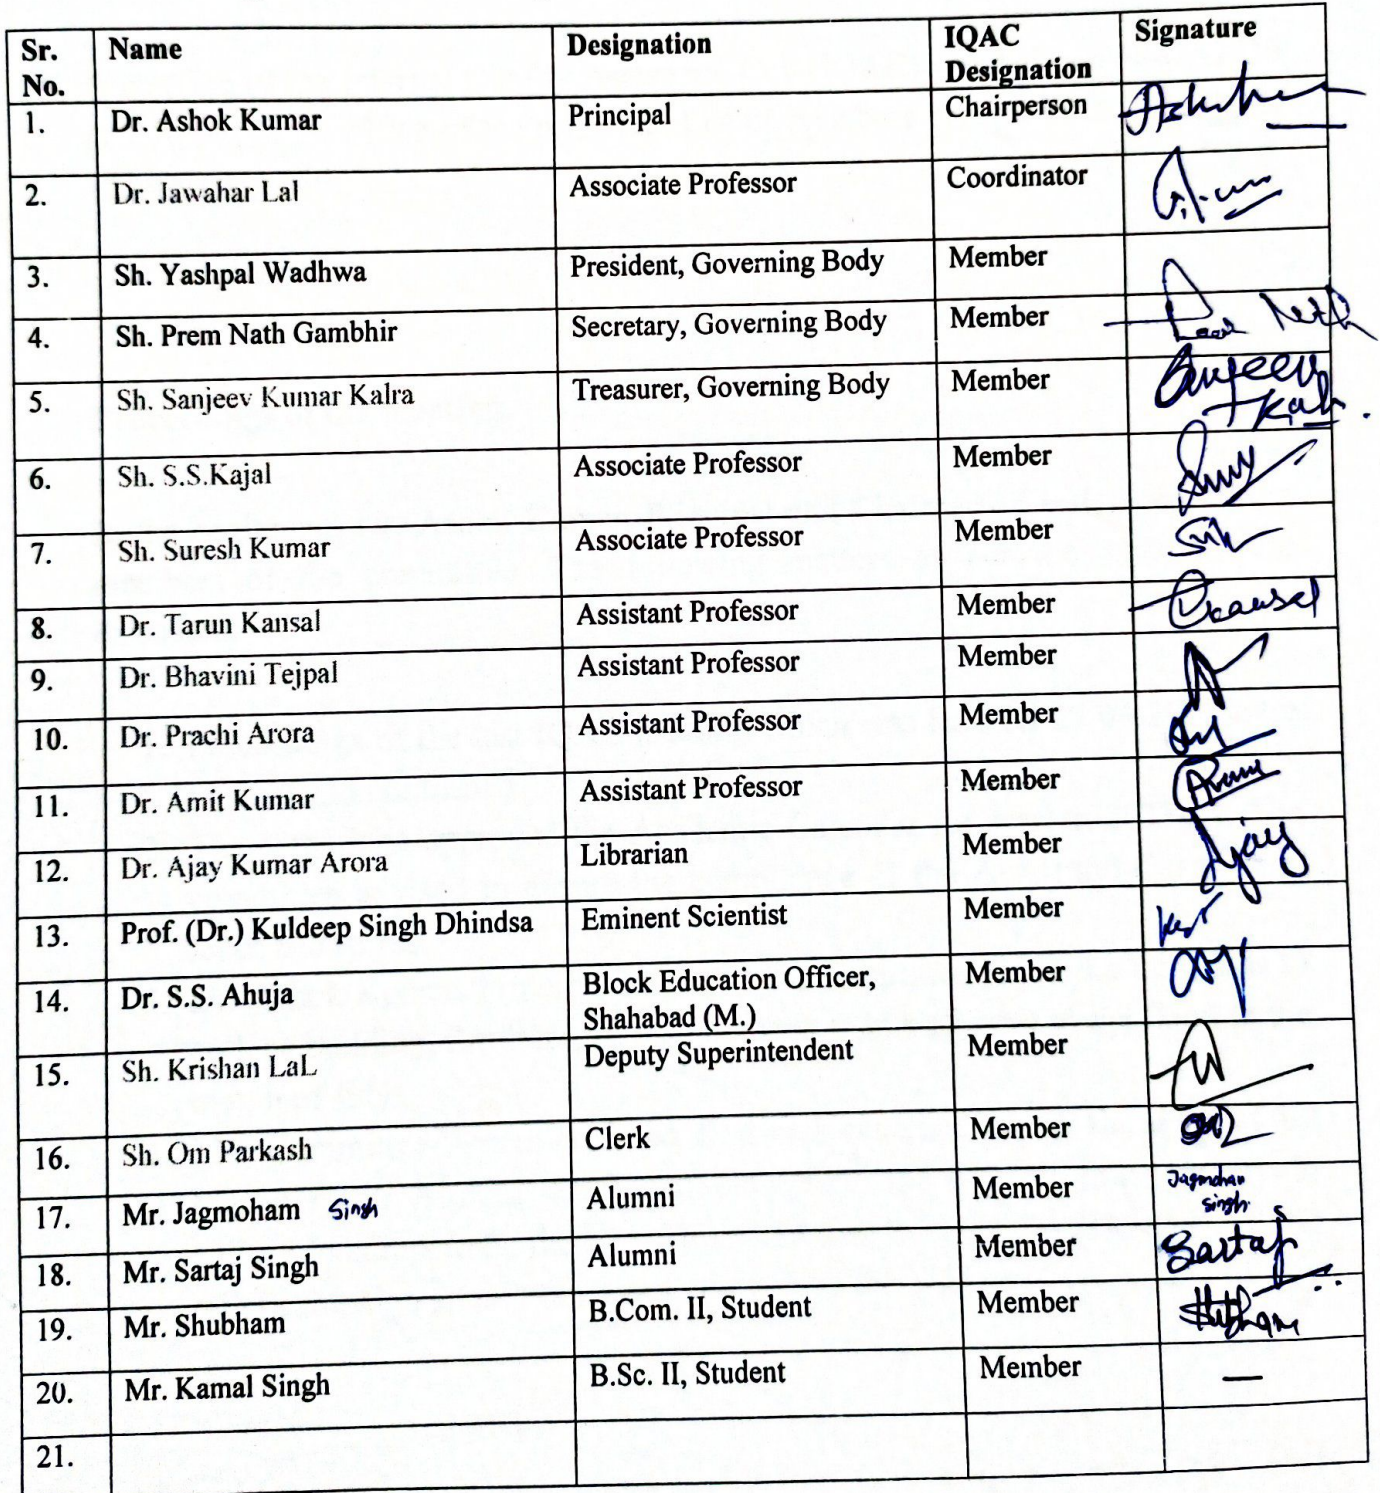 Sr. No. Name Designation IQAC Designation Signature
1. Dr. Ashok Kumar Principal Chairperson
2. Dr. Jawahar Lal Associate Professor Coordinator
3. Sh. Yashpal Wadhwa President, Governing Body Member
4. Sh. Prem Nath Gambhir Secretary, Governing Body Member Nath
5. Sh. Sanjeev Kumar Kalra Treasurer, Governing Body Member Sanjeev
6. Sh. S.S.Kajal Associate Professor Member
7. Sh. Suresh Kumar Associate Professor Member
8. Dr. Tarun Kansal Assistant Professor Member
9. Dr. Bhavini Tejpal Assistant Professor Member
10. Dr. Prachi Arora Assistant Professor Member
11. Dr. Amit Kumar Assistant Professor Member
12. Dr. Ajay Kumar Arora Librarian Member Ajay
13. Prof. (Dr.) Kuldeep Singh Dhindsa Eminent Scientist Member
14. Dr. S.S. Ahuja Block Education Officer, Shahabad (M.) Member
15. Sh. Krishan LaL Deputy Superintendent Member
16. Sh. Om Parkash Clerk Member
17. Mr. Jagmoham Singh Alumni Member Jagmohan Singh
18. Mr. Sartaj Singh Alumni Member Sartaj
19. Mr. Shubham B.Com. II, Student Member Shubham
20. Mr. Kamal Singh B.Sc. II, Student Member —
21.